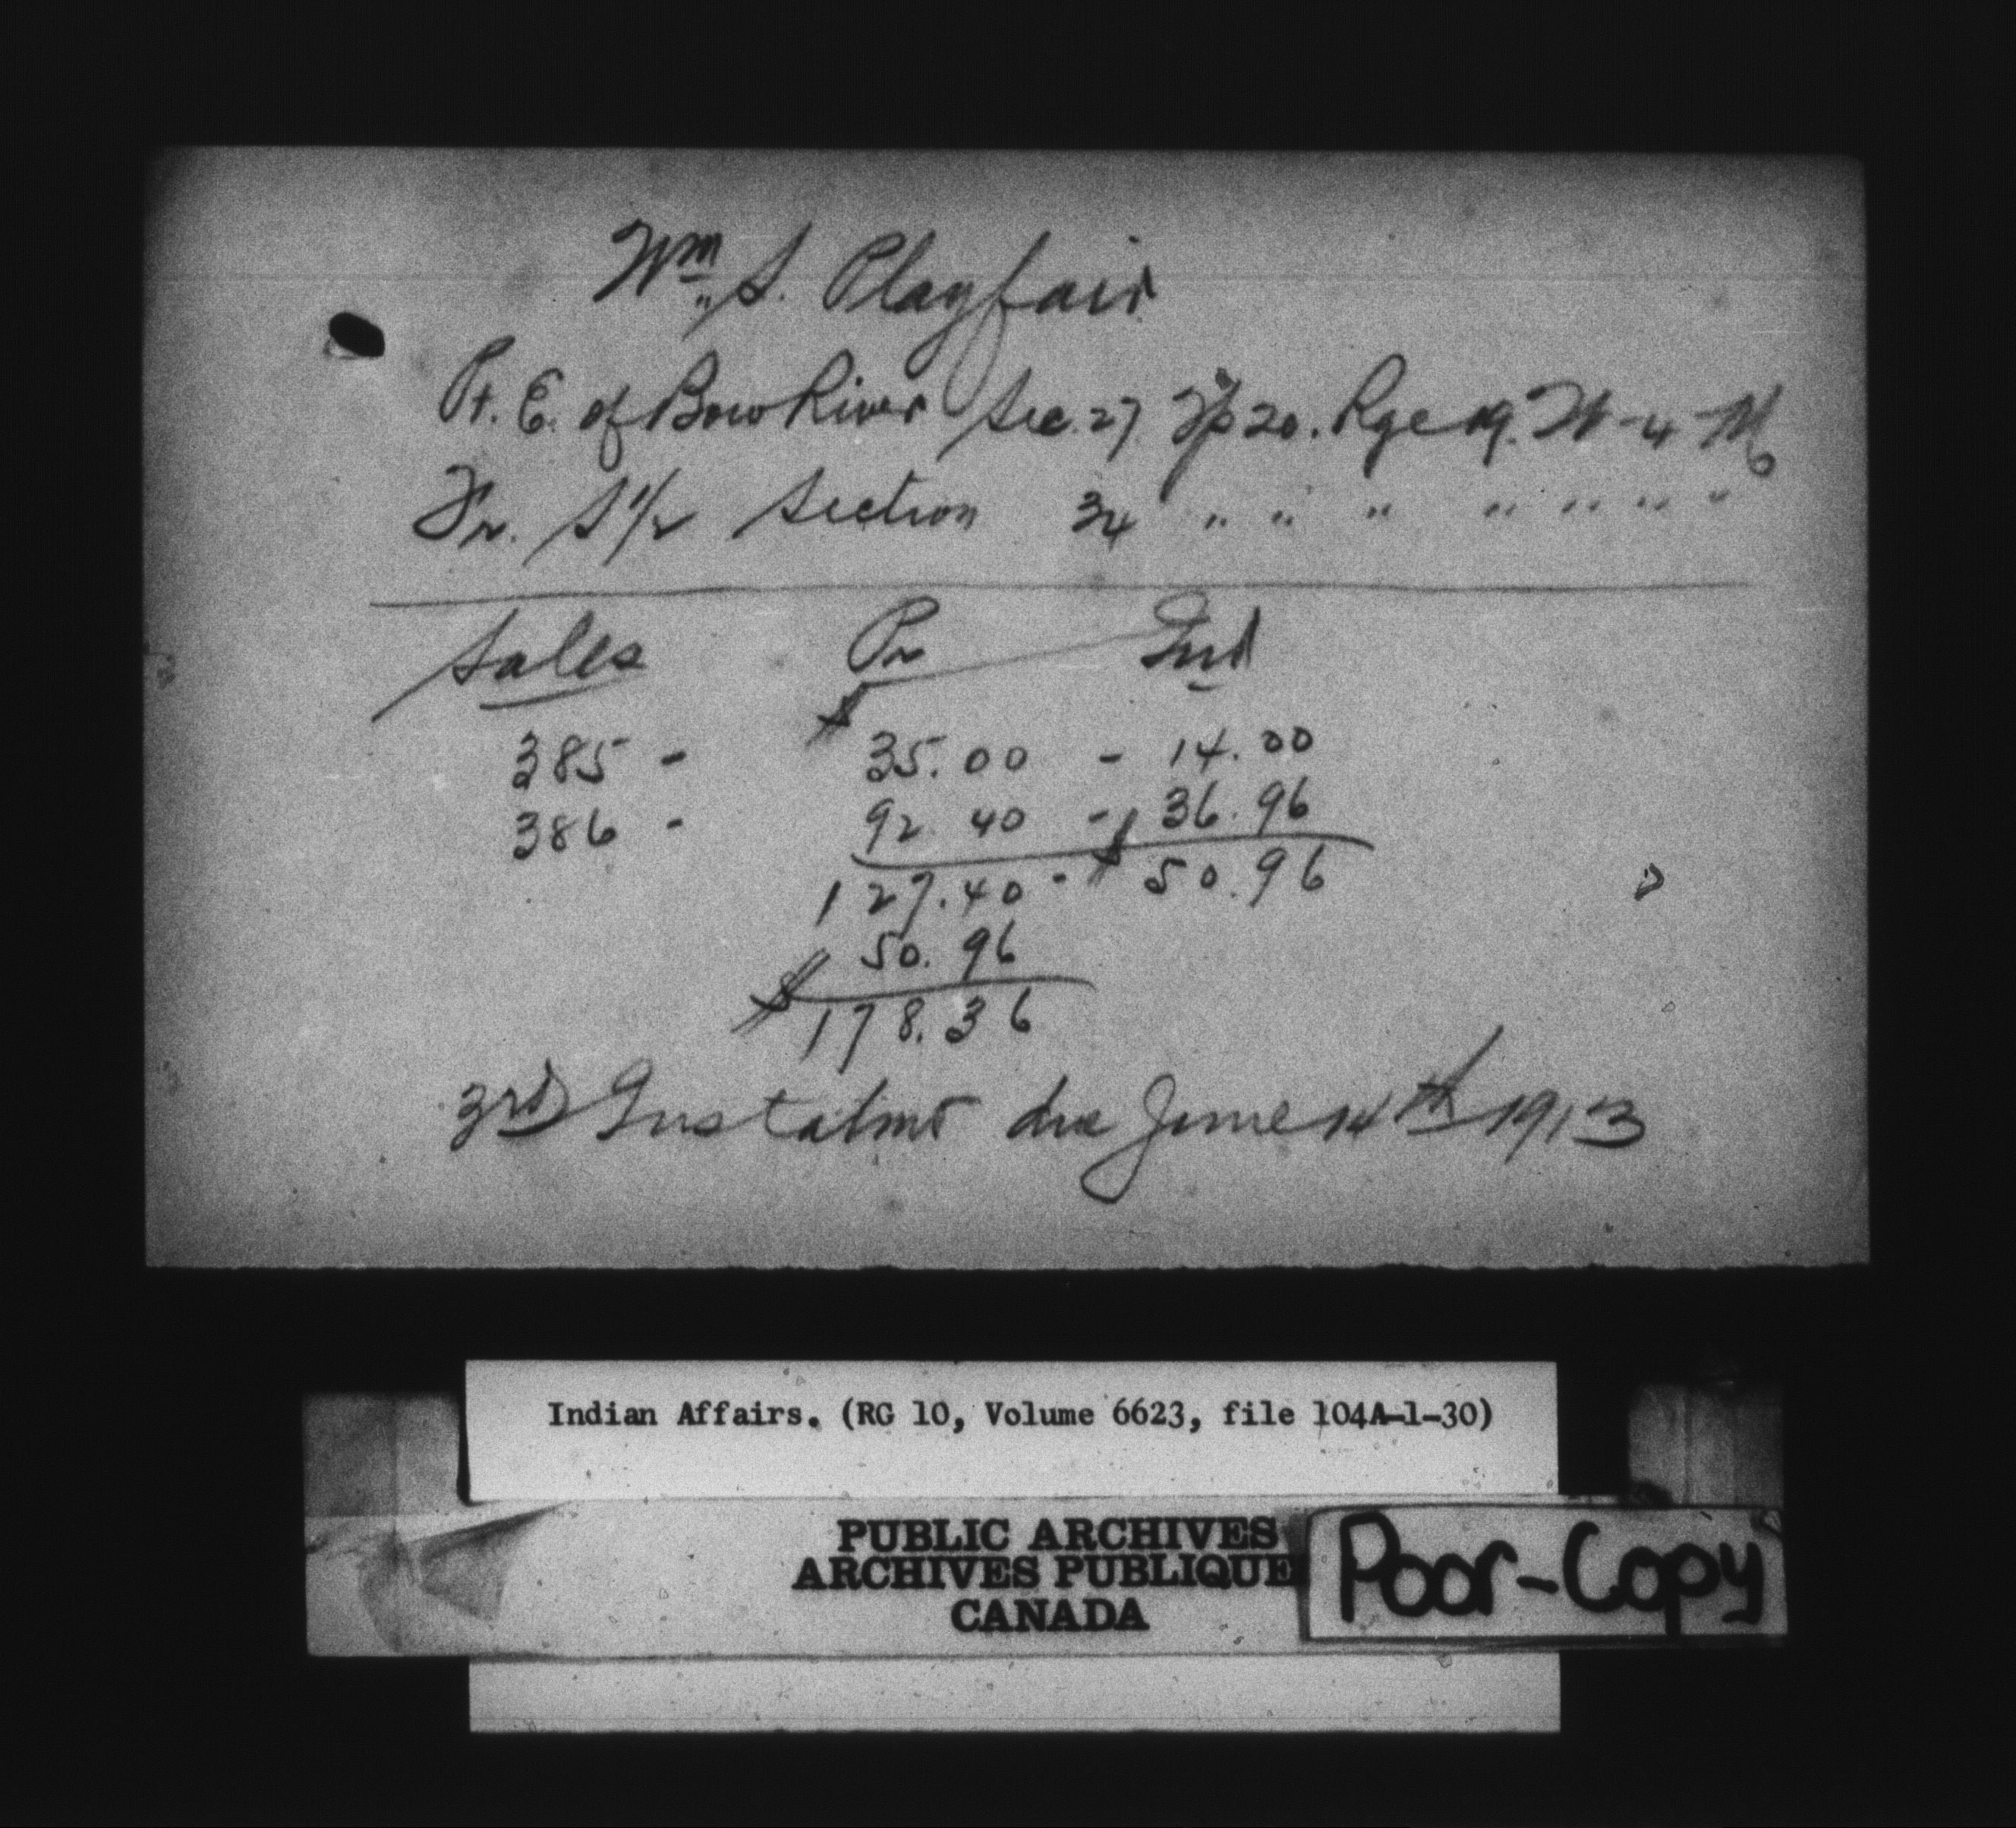 Wm. S. Playfair
Pt. E. of Bow River Sec. 27. Tp 20. Rge 19. W-4-M
Fr. S 1/2 Section 34 " " " " " " "
Sales Pr Int
385 - $ 35.00 - 14.00
386 - 92.40 - 36.96
127.40 - $ 50.96
50.96
$ 178.36
3rd Instalmt due June 14th 1913
Indian Affairs. (RG 10, Volume 6623, file 104A-1-30)
PUBLIC ARCHIVES
ARCHIVES PUBLIQUE
CANADA
Poor-Copy